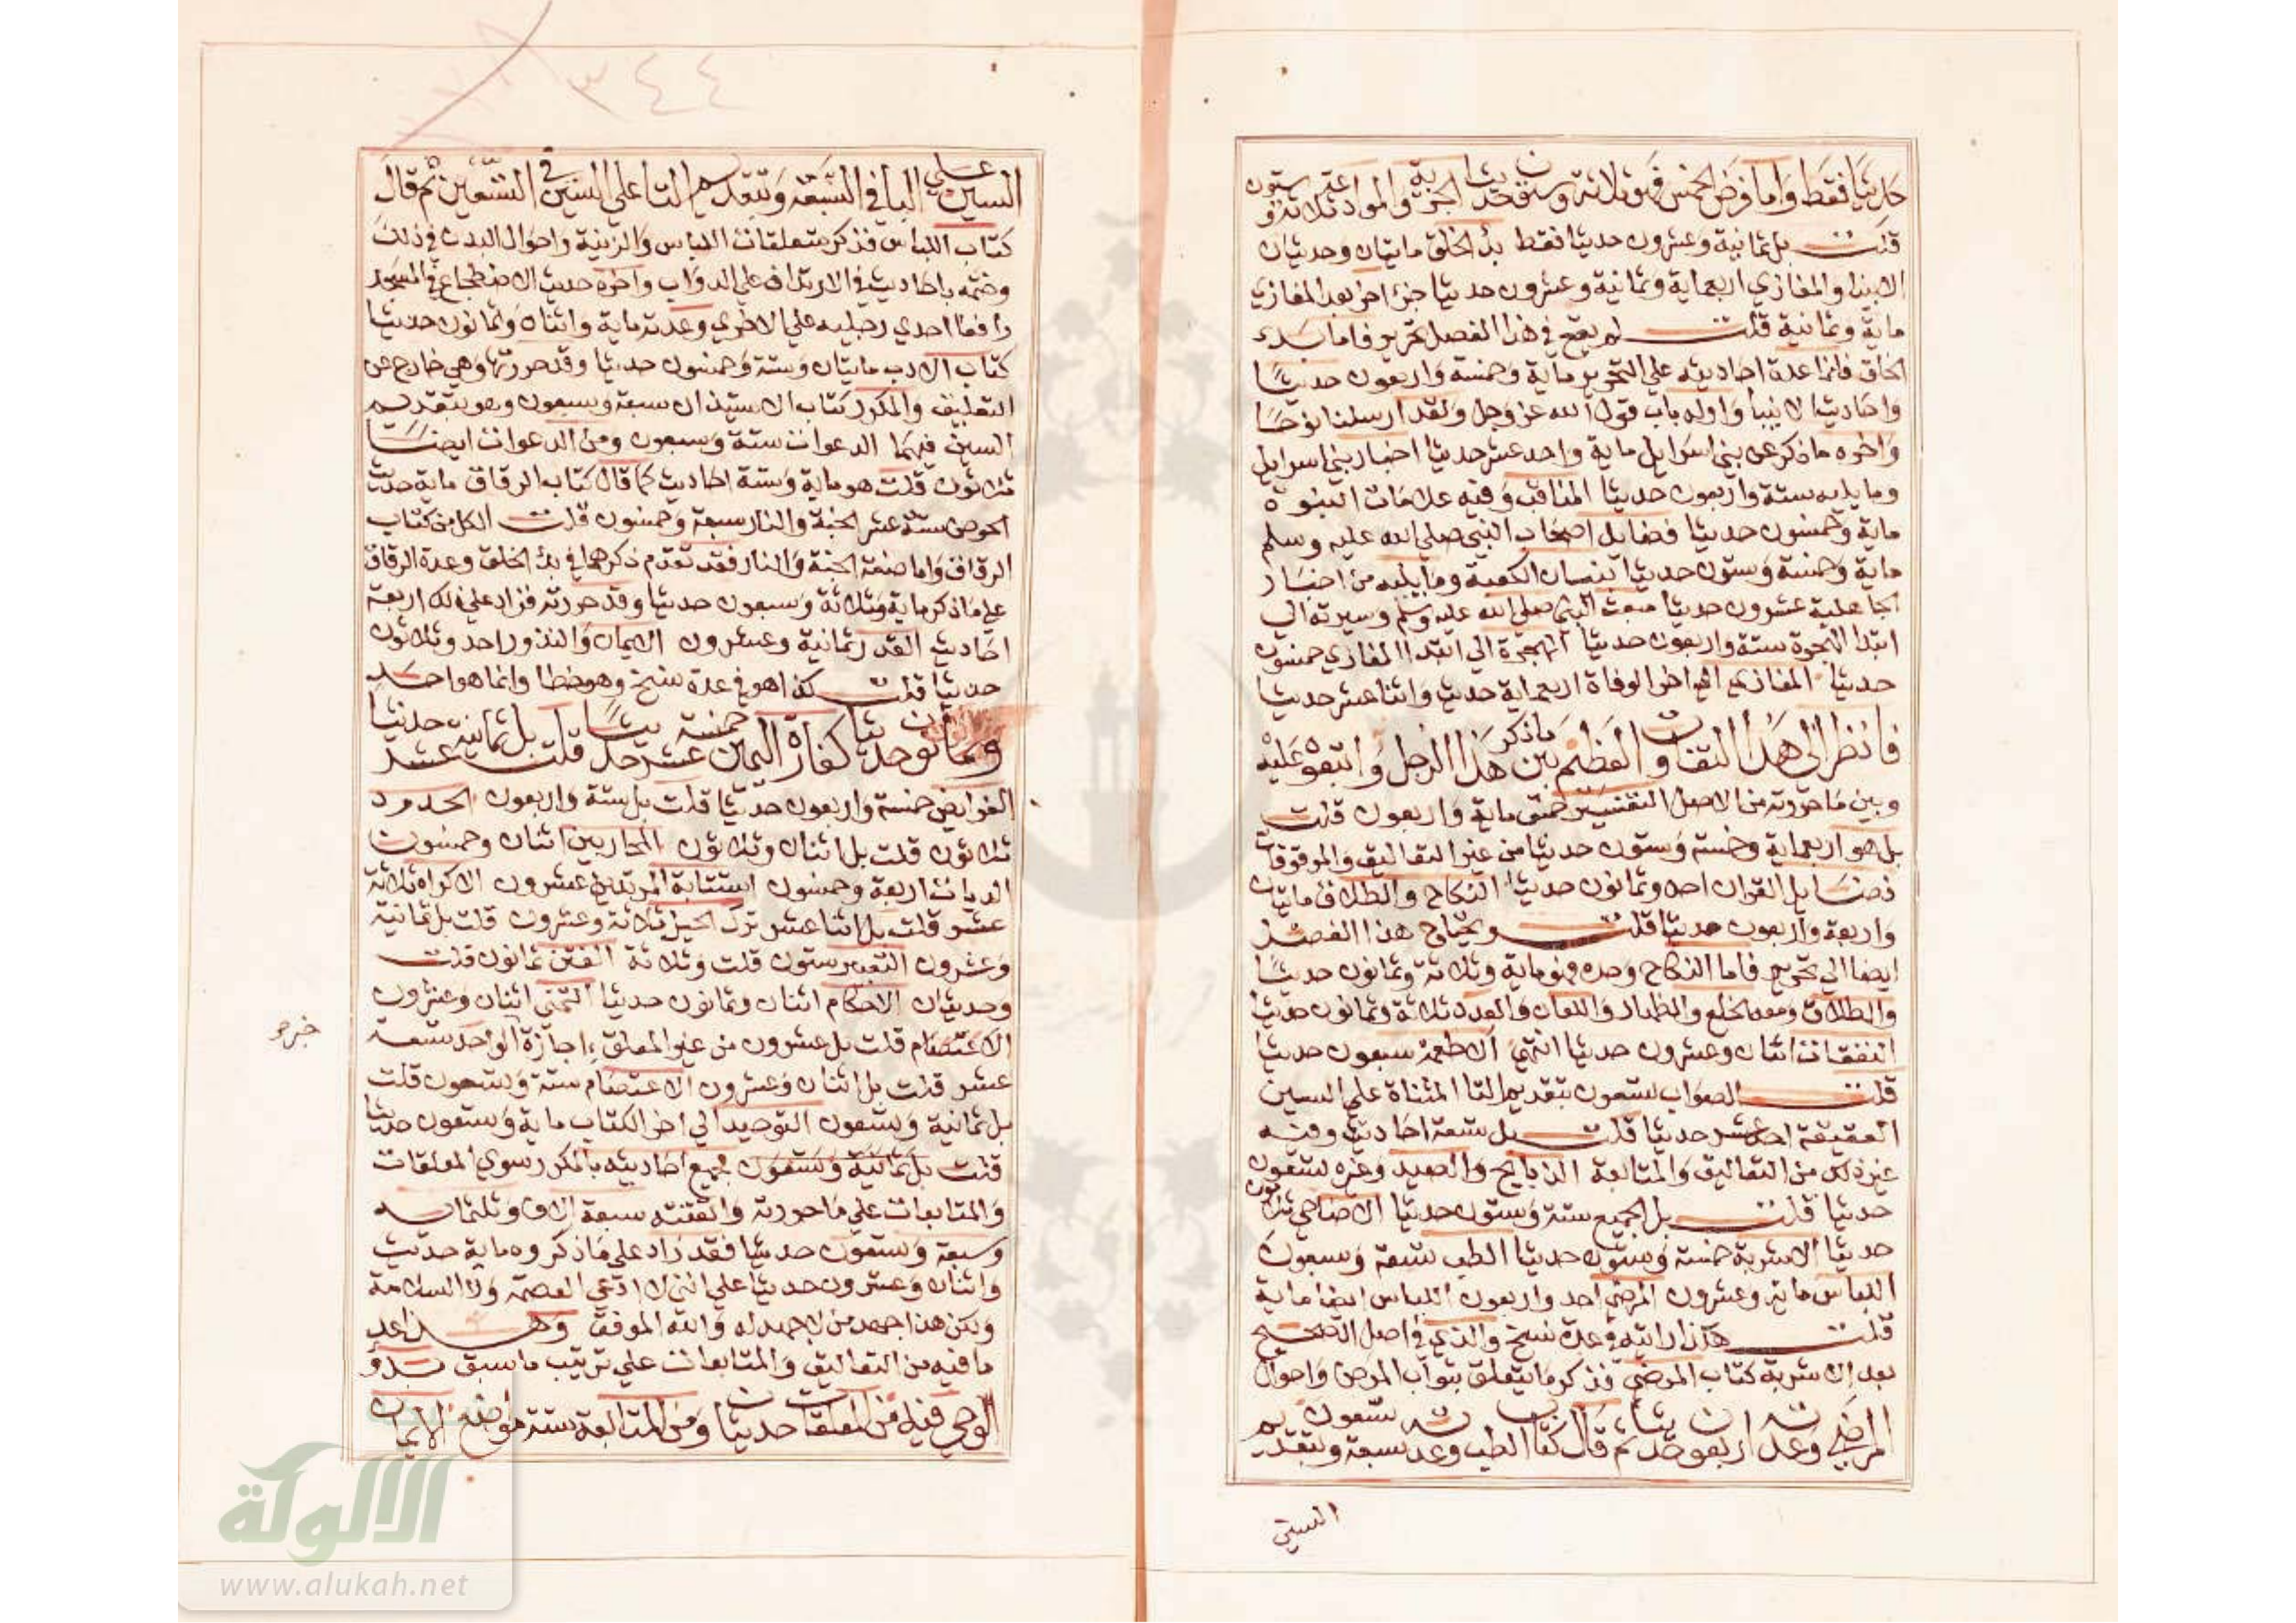 حديثا فقط واما فرض الخمس فهو ثلاثة وستون حديثا الجزية والموادعة ثلاثة وستون
قلت بل ثمانية وعشرون حديثا فقط بدؤ الخلق مايتان وحديثان
الانبيا والمغازي اربعماية وثمانية وعشرون حديثا جزء اخر بعد المغازي
ماية وثمانية قلت لم يقع في هذا الفصل تحرير فاما بدء
الخلق فانما عدة احاديثه علي التحرير ماية وخمسة واربعون حديثا
واحاديث الانبيا واوله باب قول الله عز وجل ولقد ارسلنا نوحا
واخره ما ذكر عن بني اسرايل ماية واحد عشر حديثا اخبار بني اسرايل
وما يليه ستة واربعون حديثا المناقب وفيه علامات النبوة
ماية وخمسون حديثا فضايل اصحاب النبي صلي الله عليه وسلم
ماية وخمسة وستون حديثا بنيان الكعبة وما يليه من اخبار
الجاهلية عشرون حديثا مبعث النبي صلي الله عليه وسلم وسيرته الي
ابتدا الهجرة ستة واربعون حديثا الهجرة الي ابتدا المغازي خمسون
حديثا المغازي الي اخر الوفاة اربعماية حديث واثنا عشر حديثا
فانظر الي هذا التفاوت العظيم بين ما ذكر هذا الرجل واتبعوه عليه
وبين ما حررته من الاصل التفسير خمس ماية واربعون قلت
بل هو اربعماية وخمسة وستون حديثا من غير التعاليق والموقوفات
فضايل القران احد وثمانون حديثا النكاح والطلاق مايتان
واربعة واربعون حديثا قلت ويحتاج هذا الفصل
ايضا الي تحرير فاما النكاح وحده فهو ماية وثلاثة وثمانون حديثا
والطلاق ومعه الخلع والظهار واللعان والعدد ثلاثة وثمانون حديثا
النفقات اثنان وعشرون حديثا انتهي الاطعمة سبعون حديثا
قلت الصواب تسعون بتقديم التا المثناة علي السين
العقيقة احد عشر حديثا قلت بل تسعة احاديث وفيه
غير ذلك من التعاليق والمتابعة الذبايح والصيد وغيره تسعون
حديثا قلت بل الجميع ستة وستون حديثا الاضاحي ثلاثون
حديثا الاشربة خمسة وستون حديثا الطب تسعة وسبعون
اللباس ماية وعشرون المرضي احد واربعون اللباس ايضا ماية
قلت هكذا رايته في عدة نسخ والذي في اصل الصحيح
بعد الاشربة كتاب المرضي فذكر ما يتعلق بثواب المرض واحوال
المرضي وعدته اربعون حديثا ثم قال كتاب الطب وعدته سبعة وتسعون بتقديم
السين
٣٤٤
السين علي البا في السبعة وبتقديم التا علي السين في التسعين ثم قال
كتاب اللباس فذكر متعلقات اللباس والزينة واحوال البدن في ذلك
وختمه باحاديث في الارتداف علي الدواب واخره حديث الاضطجاع في المسجد
رافعا احدي رجليه علي الاخري وعدته ماية واثنان وثمانون حديثا
كتاب الادب مايتان وستة وخمسون حديثا وقد حررتها وهي خارج عن
التعليق والمكرر كتاب الاستيذان سبعة وسبعون وهو بتقديم
السين فيهما الدعوات ستة وسبعون ومن الدعوات ايضا
ثلاثون قلت هو ماية وستة احاديث كما قال كتاب الرقاق ماية حديث
الحوض ستة عشر الجنة والنار سبعة وخمسون قلت الكل من كتاب
الرقاق واما صفة الجنة والنار فقد تقدم ذكرهما في بدؤ الخلق وعدة الرقاق
علي ما ذكر ماية وثلاثة وسبعون حديثا وقد حررته فزاد علي ذلك اربعة
احاديث القدر ثمانية وعشرون الايمان والنذور احد وثلاثون
حديثا قلت كذا هو في عدة نسخ وهو خطا وانما هو احد
وثمانون حديثا كفارة اليمين خمسة عشر حديثا قلت بل ثمانية عشر حديثا
الفرايض خمسة واربعون حديثا قلت بل ستة واربعون الحدود
ثلاثون قلت بل اثنان وثلاثون المحاربين اثنان وخمسون
الديات اربعة وخمسون استتابة المرتدين عشرون الاكراه ثلاثة
عشر قلت بل اثنا عشر ترك الحيل ثلاثة وعشرون قلت بل ثمانية
وعشرون التعبير ستون قلت وثلاثة الفتن ثمانون قلت
وحديثان الاحكام اثنان وثمانون حديثا التمني اثنان وعشرون
الاعتصام قلت بل عشرون من غير المعلق اجازة الواحد تسعة
عشر قلت بل اثنان وعشرون الاعتصام ستة وتسعون قلت
بل ثمانية وتسعون التوحيد الي اخر الكتاب ماية وتسعون حديثا
قلت بل ثمانية وتسعون فجميع احاديثه بالمكرر سوي المعلقات
والمتابعات علي ما حررته واتقنته سبعة الاف وثلثماية
وسبعة وتسعون حديثا فقد زاد علي ما ذكروه ماية حديث
واثنان وعشرون حديثا علي انني لا ادعي العصمة ولا السلامة
ولكن هذا جهد من لا جهد له والله الموفق وهذا عد
ما فيه من التعاليق والمتابعات علي ترتيب ما سبق بدؤ
الوحي فيه من المعلقات حديثان ومن المتابعة ستة مواضع الايمان
الألوكة
www.alukah.net